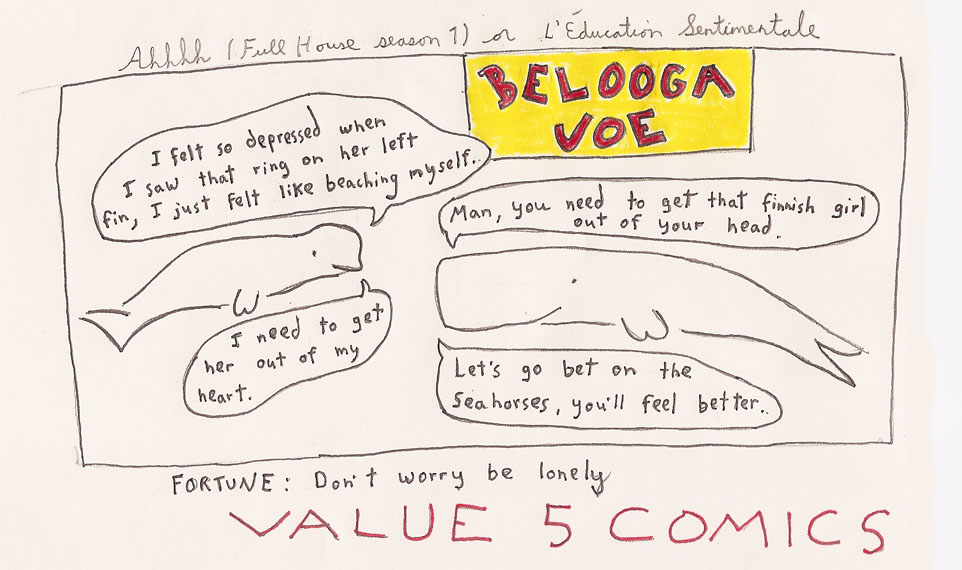 Ahhhh (Full House season 1) or L'Éducation Sentimentale
BELOOGA
VOE
I felt so depressed when
I saw that ring on her left
fin, I just felt like beaching myself..
Man, you need to get that finnish girl
out of your head.
I need to get
her out of my
heart.
Let's go bet on the
Seahorses, you'll feel better..
FORTUNE: Don't worry be lonely
VALUE 5 COMICS